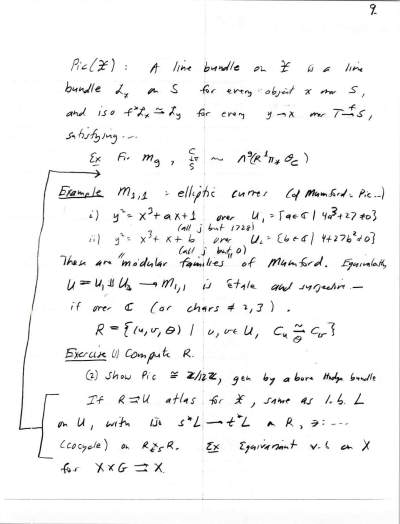 9.
Pic(𝔛): A line bundle on 𝔛 is a line
bundle L_x on S for every object x over S,
and iso f*L_x ≅ L_y for every y → x over T →^f S,
satisfying ...
Ex For M_g, C ↓π S ~ Λ^g(R^1π_* O_C)
Example M_{1,1} = elliptic curves (cf Mumford - Pic...)
i) y² = x³ + ax + 1 over U_1 = {a ∈ ℂ | 4a³ + 27 ≠ 0}
(all j but 1728)
ii) y² = x³ + x + b over U_2 = {b ∈ ℂ | 4 + 27b² ≠ 0}
(all j but 0)
These are "modular families" of Mumford. Equivalently,
U = U_1 ⨿ U_2 → M_{1,1} is étale and surjective —
if over ℂ (or chars ≠ 2, 3).
R = {(u, v, θ) | u, v ∈ U, C_u ≅_θ C_v}
Exercise (1) Compute R.
(2) Show Pic ≅ ℤ/12ℤ, gen by above Hodge bundle
If R ⇉ U atlas for 𝔛, same as l.b. L
on U, with iso s*L → t*L on R, ∋: ...
(cocycle) on R ×_{t,s} R. Ex Equivariant v.b. on X
for X × G ⇉ X